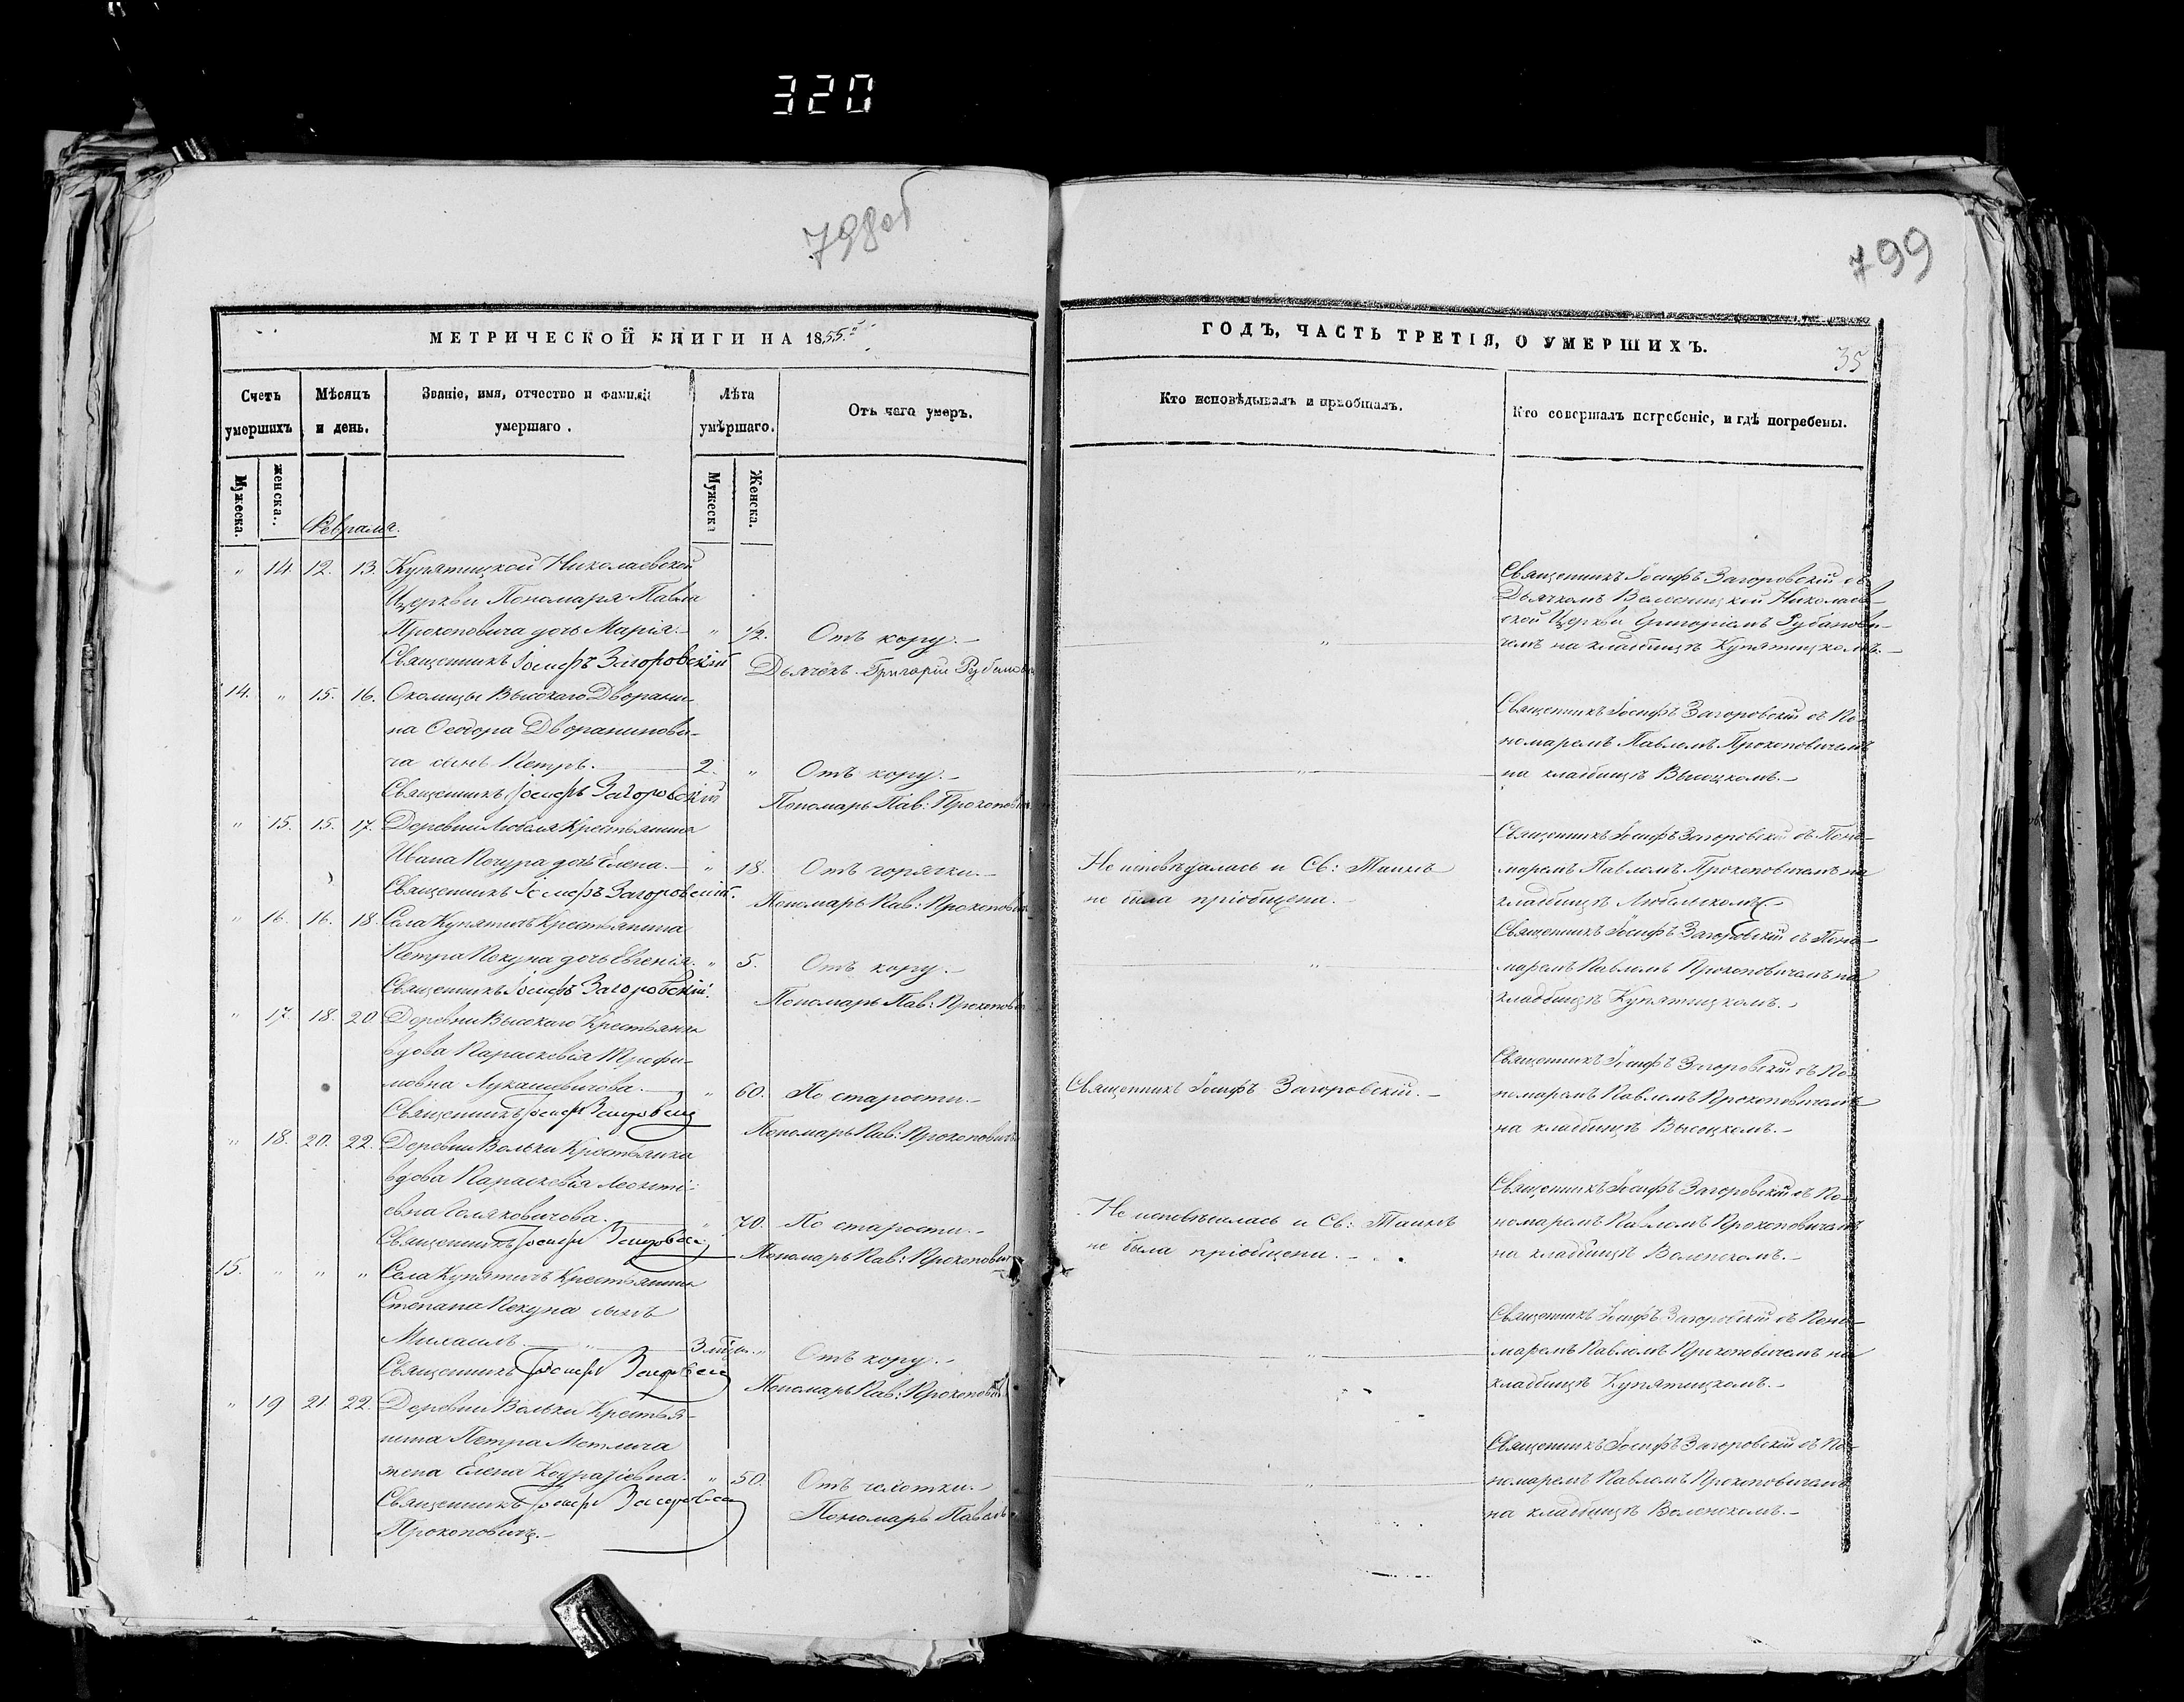 320
798об
799
МЕТРИЧЕСКОЙ КНИГИ НА 1855й
Счетъ умершихъ
Мѣсяцъ и день.
Званіе, имя, отчество и фамилія умершаго.
Лѣта умѣршаго.
Отъ чего умеръ.
Мужеска.
женска.
Мужеска
Женска.
Февраля.
" 14. 12. 13. Купятицкой Николаевской
Церкви Пономаря Павла
Прокоповича дочь Марія. " 1/2. Отъ кору.
Священникъ Іосифъ Загоровскій Дьячекъ Григорій
14. " 15. 16. Околицы Высокаго Дворяни-
на Феодора Дворанинови-
ча сынъ Петръ. 2. " Отъ кору.
Священникъ Іосифъ Загоровскій Пономарь Пав: Прокопович
" 15. 15. 17. Деревни Любеля Крестьянина
Ивана Кочура дочь Елена. " 18. Отъ горячки.
Священникъ Іосифъ Загоровскій. Пономарь Пав: Прокопович
" 16. 16. 18. Села Купятичъ Крестьянина
Петра Пекуна дочь Евгенія. " 5. Отъ кору.
Священникъ Іосифъ Загоровскій. Пономарь Пав: Прокопович
" 17. 18. 20. Деревни Высокаго Крестьянка
вдова Параскевія Трофи-
мовна Лукашевичова. " 60. По старости.
Священникъ Іосифъ Загоровскій Пономарь Пав: Прокоповичъ
" 18. 20. 22. Деревни Вольки Крестьянка
вдова Параскевія Леонті-
евна " 70. По старости.
Священникъ Іосифъ Загоровскій Пономарь Пав: Прокопович
15. " " " Села Купятичъ Крестьянина
Степана Пекуна сынъ
Михаилъ " 3 " Отъ кору.
Священникъ Іосифъ Загоровскій Пономарь Пав: Прокопович
" 19 21. 22. Деревни Вольки Крестья-
нина Петра Метлича
жена Елена " 50. Отъ чахотки.
Священникъ Іосифъ Загоровскій Пономарь Павелъ
Прокоповичъ.
ГОДЪ, ЧАСТЬ ТРЕТІЯ, О УМЕРШИХЪ.
35
Кто исповѣдывалъ и пріобщалъ.
Кто совершалъ погребеніе, и гдѣ погребены.
Священникъ Іосифъ Загоровскій съ
Дьячкомъ Николаев-
" ской Церкви Григоріемъ
чемъ на кладбищѣ Купятицкомъ.
Священникъ Іосифъ Загоровскій съ По-
номаремъ Павломъ Прокоповичемъ
" на кладбищѣ Высоцкомъ.
Священникъ Іосифъ Загоровскій съ Поно-
Не исповѣдалась и Св: Таинъ маремъ Павломъ Прокоповичемъ на
не была пріобщена. кладбищѣ Любельскомъ.
Священникъ Іосифъ Загоровскій съ Поно-
" маремъ Павломъ Прокоповичемъ на
кладбищѣ Купятицкомъ.
Священникъ Іосифъ Загоровскій съ По-
Священникъ Іосифъ Загоровскій. номаремъ Павломъ Прокоповичемъ
на кладбищѣ Высоцкомъ.
Священникъ Іосифъ Загоровскій съ По-
Не и Св: Таинъ номаремъ Павломъ Прокоповичемъ
не была пріобщена. на кладбищѣ Воленскомъ.
Священникъ Іосифъ Загоровскій съ Поно-
" маремъ Павломъ Прокоповичемъ на
кладбищѣ Купятицкомъ.
Священникъ Іосифъ Загоровскій съ По-
" номаремъ Павломъ Прокоповичемъ
на кладбищѣ Воленскомъ.